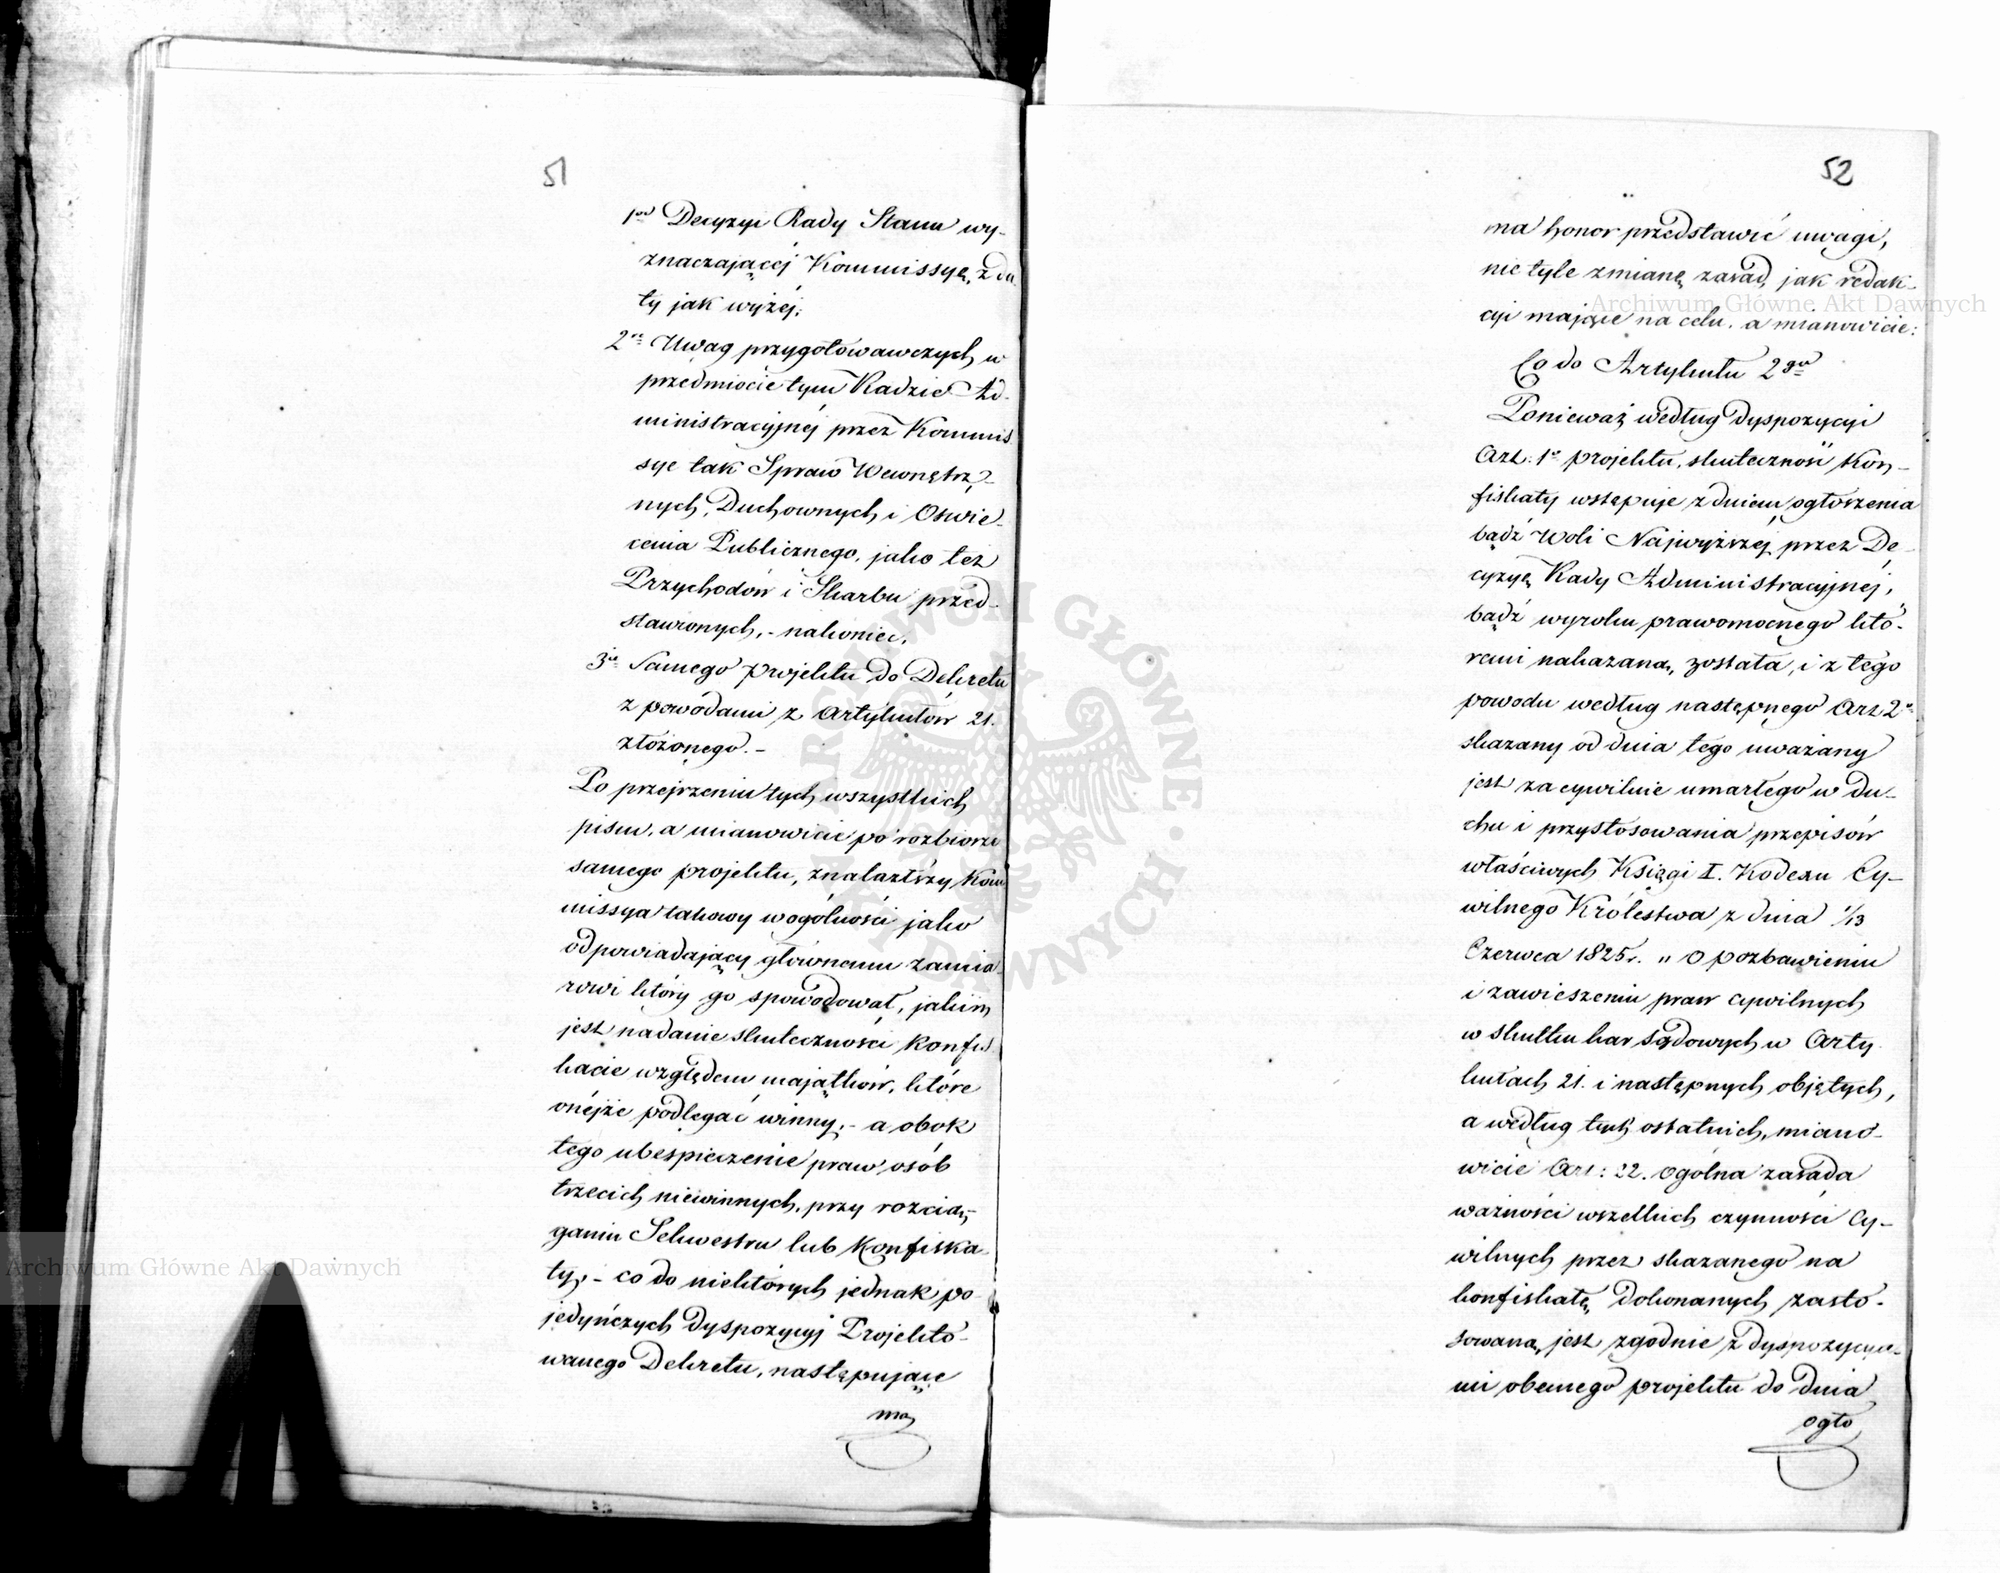 51
1od Decyzyi Rady Stanu wy-
znaczającéj Kommissyą, z da-
ty jak wyżéj;
2re Uwag przygotowawczych w
przedmiocie tym Radzie Ad-
ministracyjnéj przez Kommis
sye tak Spraw Wewnętrz-
nych, Duchownych i Oswie-
cenia Publicznego, jako też
Przychodów i Skarbu przed-
stawionych, - nakoniec,
3cie Samego projektu do Dekretu
z powodami z Artykułów 21.
złożonego. -
Po przejrzeniu tych wszystkich
pism, a mianowicie po rozbiorze
samego projektu, znalazłszy Kom
missya takowy w ogólności jako
odpowiadający głównemu zamia
rowi który go spowodował, jakim
jest nadanie skuteczności Konfis
kacie względem majątków, które
onéjże podlegać winny, - a obok
tego ubespieczenie praw osób
trzecich niewinnych, przy rozcią-
ganiu Sekwestru lub Konfiska-
ty, - co do niektórych jednak po-
jedyńczych dyspozycyj Projekto-
wanego Dekretu, następujące
ma
52
ma honor przedstawić uwagi,
nie tyle zmianę zasad, jak redak-
cyi mające na celu, a mianowicie:
Co do Artykułu 2go
Ponieważ według dyspozycyi
Art: 1o projektu, skuteczność Kon-
fiskaty wstępuje z dniem ogłoszenia
bądź Woli Najwyższéj przez De-
cyzyą Rady Administracyjnéj,
bądź wyroku prawomocnego któ-
remi nakazaną została, i z tego
powodu według następnego Art. 2o
skazany od dnia tego uważany
jest za cywilnie umarłego w du-
chu i przystosowania przepisów
właściwych Księgi I. Kodexu Cy-
wilnego Królestwa z dnia 1/13
Czerwca 1825 r. „ O pozbawieniu
i zawieszeniu praw cywilnych
w skutku kar sądowych w Arty
kułach 21. i następnych objętych,
a według tych ostatnich, miano-
wicie Art: 22. ogólna zasada
ważności wszelkich czynności Cy-
wilnych przez skazanego na
konfiskatę dokonanych zasto-
sowaną jest zgodnie z dyspozycya-
mi obecnego projektu do dnia
ogło
Archiwum Główne Akt Dawnych
Archiwum Główne Akt Dawnych
ARCHIWUM GŁÓWNE AKT DAWNYCH